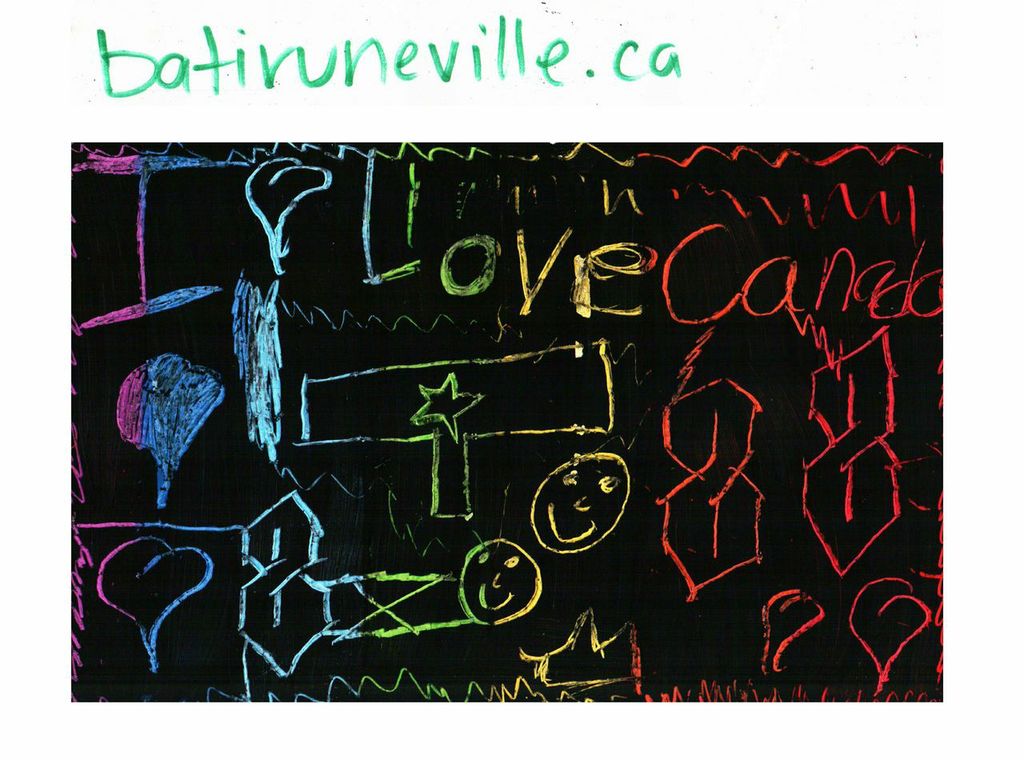 batiruneville.ca
I Love Canada